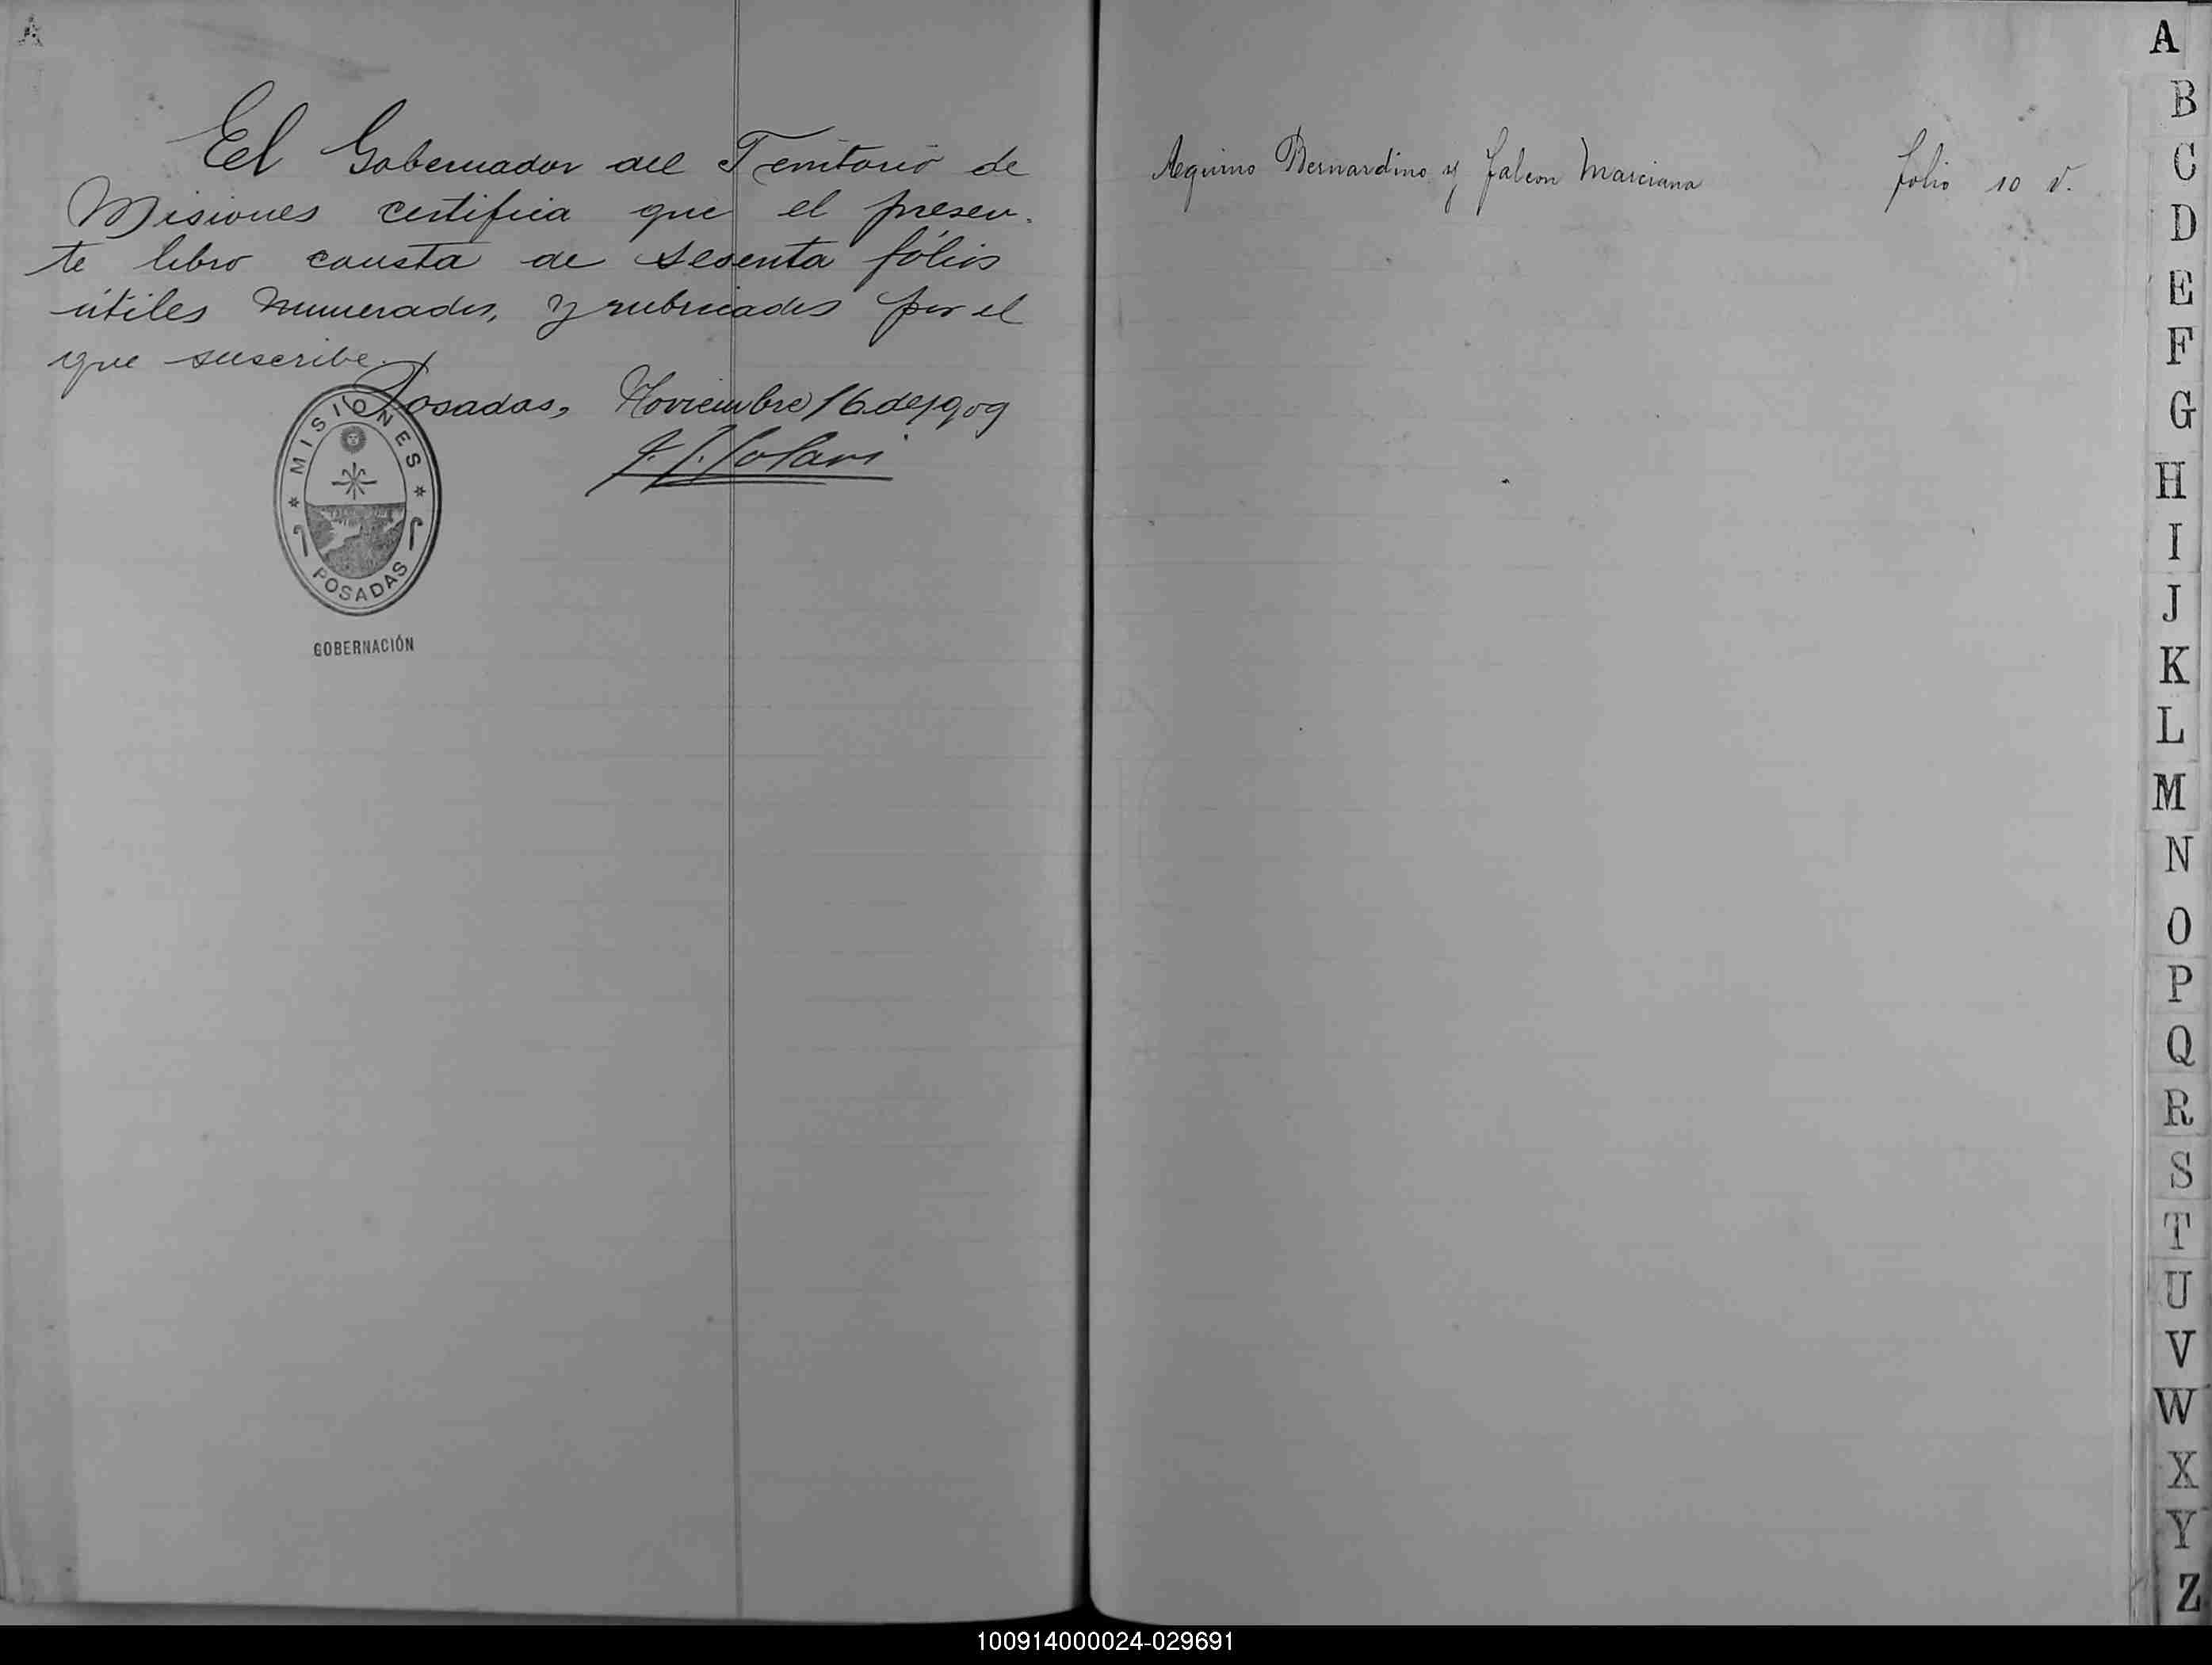 A
El Gobernador del Territorio de
Misiones certifica que el presen-
te libro consta de sesenta fólios
útiles numerados, y rubricados por el
que suscribe.
Posadas, Noviembre 16 de 1909
J. J. Solari
MISIONES
POSADAS
GOBERNACIÓN
Aquino Bernardino y Falcon Marciana folio 10 v.
A
B
C
D
E
F
G
H
I
J
K
L
M
N
O
P
Q
R
S
T
U
V
W
X
Y
Z
100914000024-029691